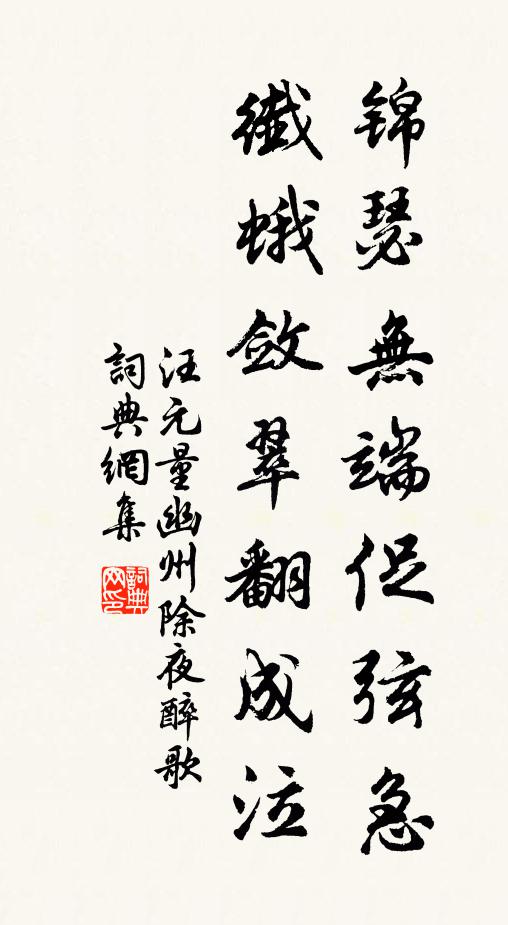 锦瑟無端促弦急
纖蛾斂翠翻成泣
汪元量幽州除夜醉歌
詞典網集
詞典網印